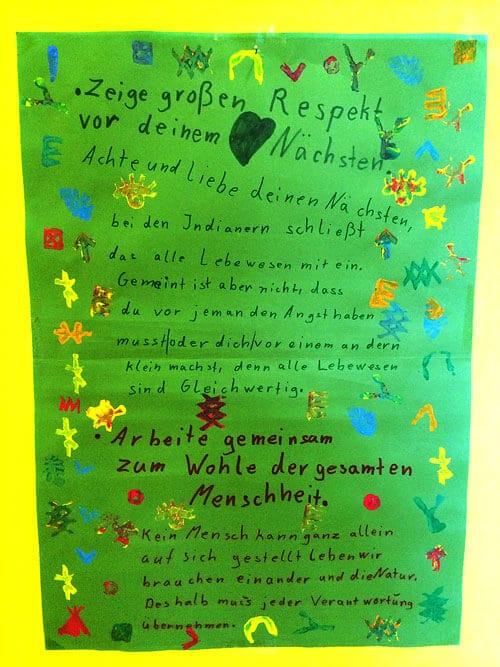 • Zeige großen Respekt
vor deinem Nächsten.
Achte und liebe deinen Nächsten,
bei den Indianern schließt
das alle Lebewesen mit ein.
Gemeint ist aber nicht, dass
du vor jemanden Angst haben
musst/oder dich/vor einem andern
klein machst, denn alle Lebewesen
sind Gleichwertig.
• Arbeite gemeinsam
zum Wohle der gesamten
Menschheit.
Kein Mensch kann ganz allein
auf sich gestellt leben wir
brauchen einander und die Natur.
Deshalb muss jeder Verantwortung
übernehmen.